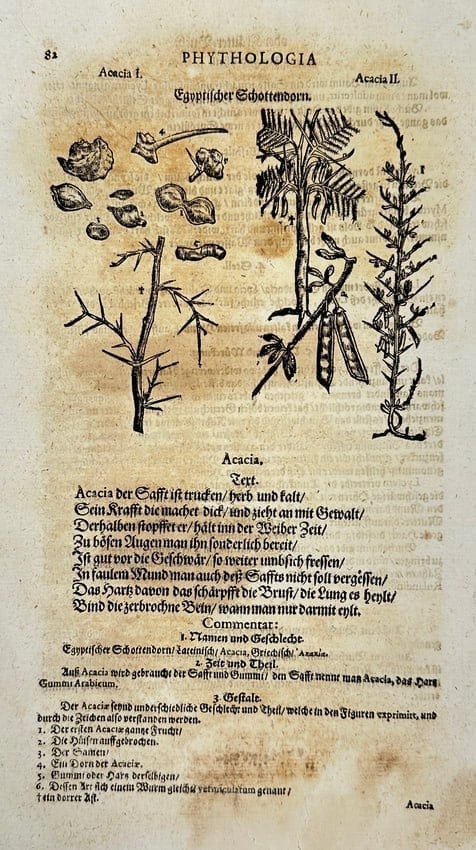 82
PHYTHOLOGIA
Acacia I.
Acacia II.
Egyptischer Schottendorn.
Acacia.
Text.
Acacia der Safft ist trucken/ herb und kalt/
Sein Krafft die machet dick/ und zieht an mit Gewalt/
Derhalben stopffet er/ hält inn der Weiber Zeit/
Zu bösen Augen man ihn sonderlich bereit/
Ist gut vor die Geschwär/ so weiter umbsich fressen/
In faulem Mund man auch deß Saffts nicht soll vergessen/
Das Hartz davon das schärpfft die Brust/ die Lung es heylt/
Bind die zerbrochne Bein/ wann man nur darmit eylt.
Commentar:
1. Namen und Geschlecht.
Egyptischer Schottendorn/ Lateinisch/ Acacia, Griechisch/
2. Zeit und Theil.
Auß Acacia wird gebraucht der Safft und Gummi/ den Safft nennt man Acacia, das Hartz
Gummi Arabicum.
3. Gestalt.
Der Acaciæ seynd underschiedliche Geschlecht und Theil/ welche in den Figuren exprimirt, und
durch die Zeichen also verstanden werden.
1. Der ersten Acaciæ gantze Frucht/
2. Die Hülsen auffgebrochen.
3. Der Samen/
4. Ein Dorn der Acaciæ.
5. Gummi oder Hartz derselbigen/
6. Dessen Art sich einem Wurm gleicht vermiculatum genant/
† ein dorrer Ast.
Acacia